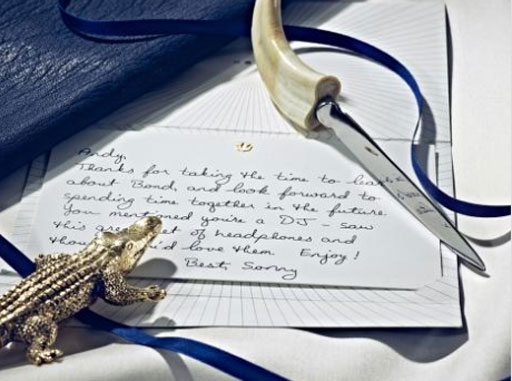 Andy,
Thanks for taking the time to
about Bond, and look forward to
spending time together in the future.
You mentioned you're a DJ - saw
this great set of headphones and
thought you'd love them. Enjoy!
Best, Sonny